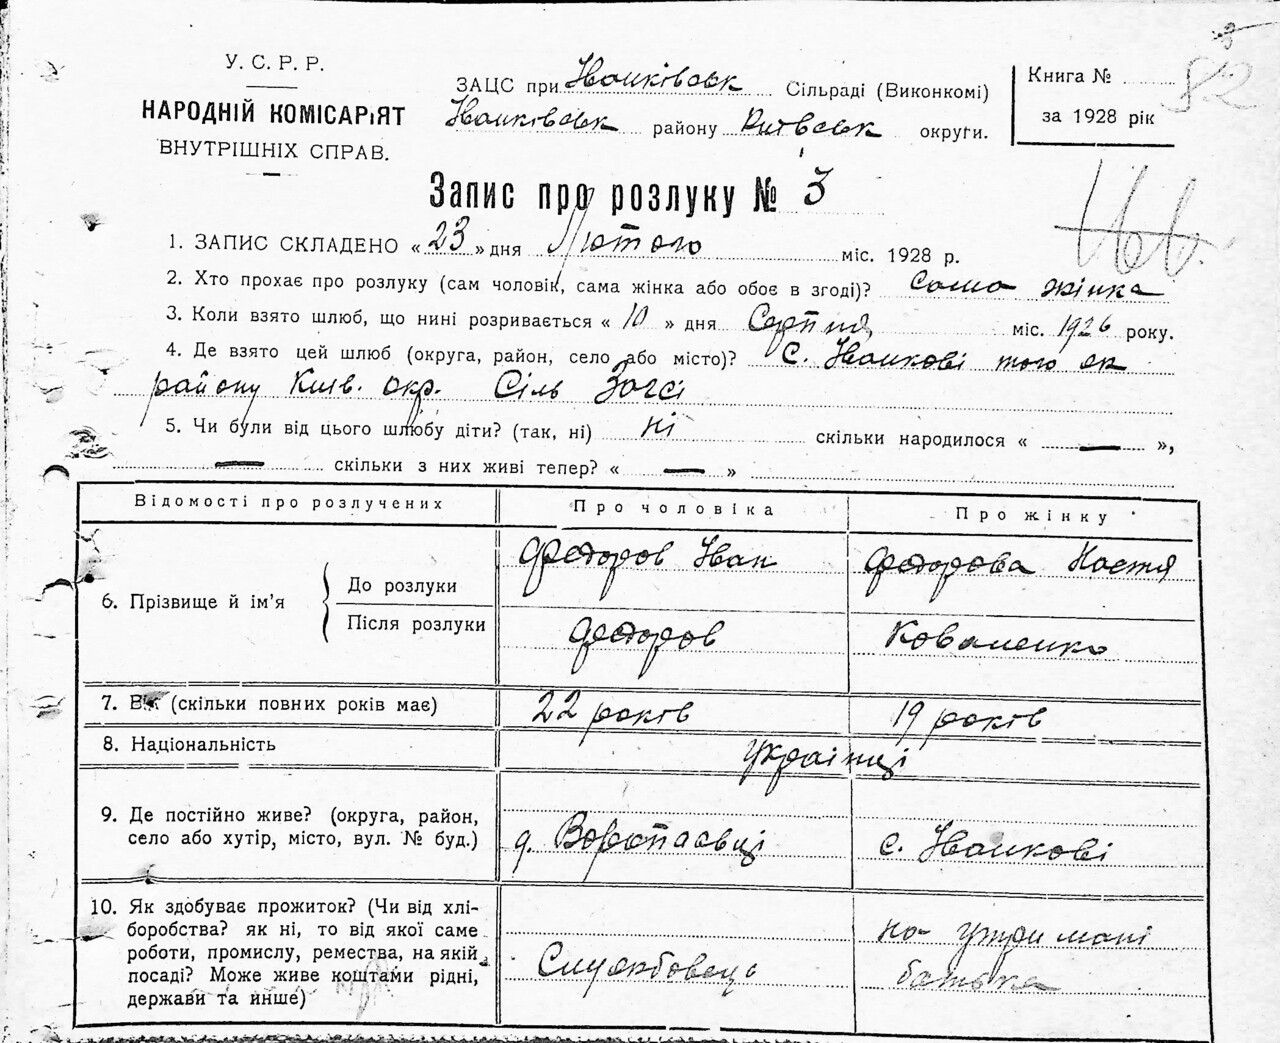 82
У. С. Р. Р.
НАРОДНІЙ КОМІСАРІЯТ
ВНУТРІШНІХ СПРАВ.
ЗАЦС при Іванківськ Сільраді (Виконкомі)
Іванківськ району Київськ округи.
Книга №
за 1928 рік
Запис про розлуку № 3
1. ЗАПИС СКЛАДЕНО « 23 » дня Лютого міс. 1928 р.
2. Хто прохає про розлуку (сам чоловік, сама жінка або обоє в згоді)? Сама жінка
3. Коли взято шлюб, що нині розривається « 10 » дня Серпня міс. 1926 року.
4. Де взято цей шлюб (округа, район, село або місто)? С. Іванкові того ж
району Київ. окр. Сіль Загсі
5. Чи були від цього шлюбу діти? (так, ні) ні скільки народилося « — »,
— скільки з них живі тепер? « — »
Відомості про розлучених Про чоловіка Про жінку
6. Прізвище й ім'я
До розлуки Федоров Іван Федорова Настя
Після розлуки Федоров Коваленко
7. Вік (скільки повних років має) 22 років 19 років
8. Національність Українці
9. Де постійно живе? (округа, район,
село або хутір, місто, вул. № буд.) с. Іванкові
10. Як здобуває прожиток? (Чи від хлі-
боробства? як ні, то від якої саме
роботи, промислу, ремества, на якій
посаді? Може живе коштами рідні,
держави та инше)
Службовець
на утримані
батька